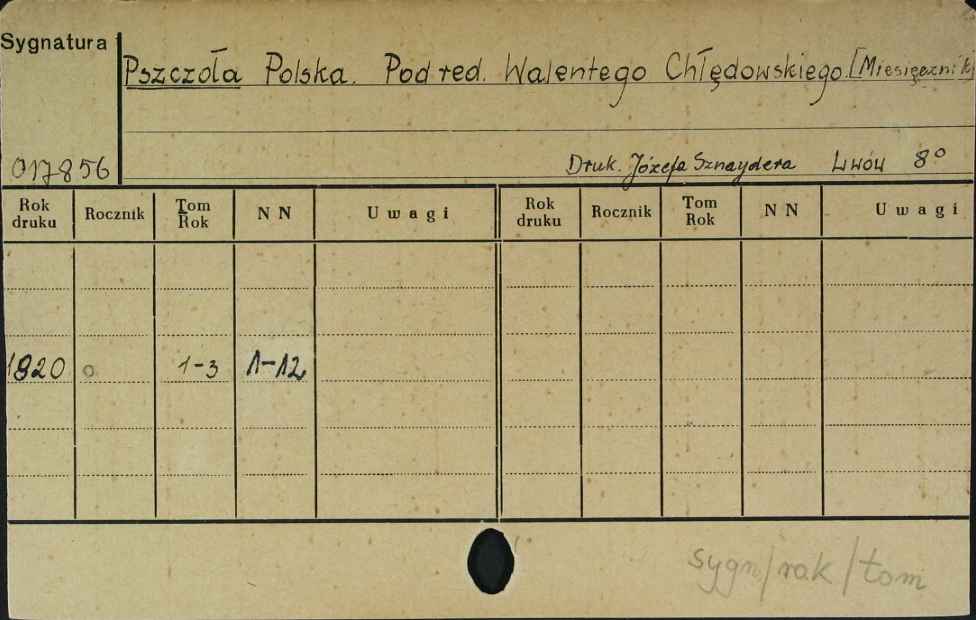 Sygnatura
Pszczoła Polska. Pod red. Walentego Chłędowskiego. [Miesięcznik]
017856
Druk. Józefa Sznaydera Lwów 8°
Rok druku Rocznik Tom Rok NN Uwagi Rok druku Rocznik Tom Rok NN Uwagi
1820 o 1-3 1-12
sygn/rok/tom